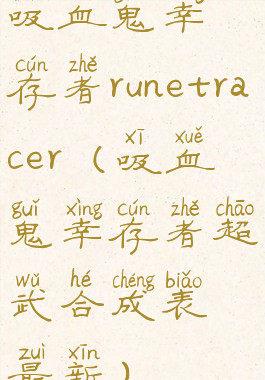 吸血鬼幸
cún zhě
存者runetra
xī xuě
cer（吸血
guǐ xìng cún zhě chāo
鬼幸存者超
wǔ hé chéng biǎo
武合成表
zuì xīn
最新）